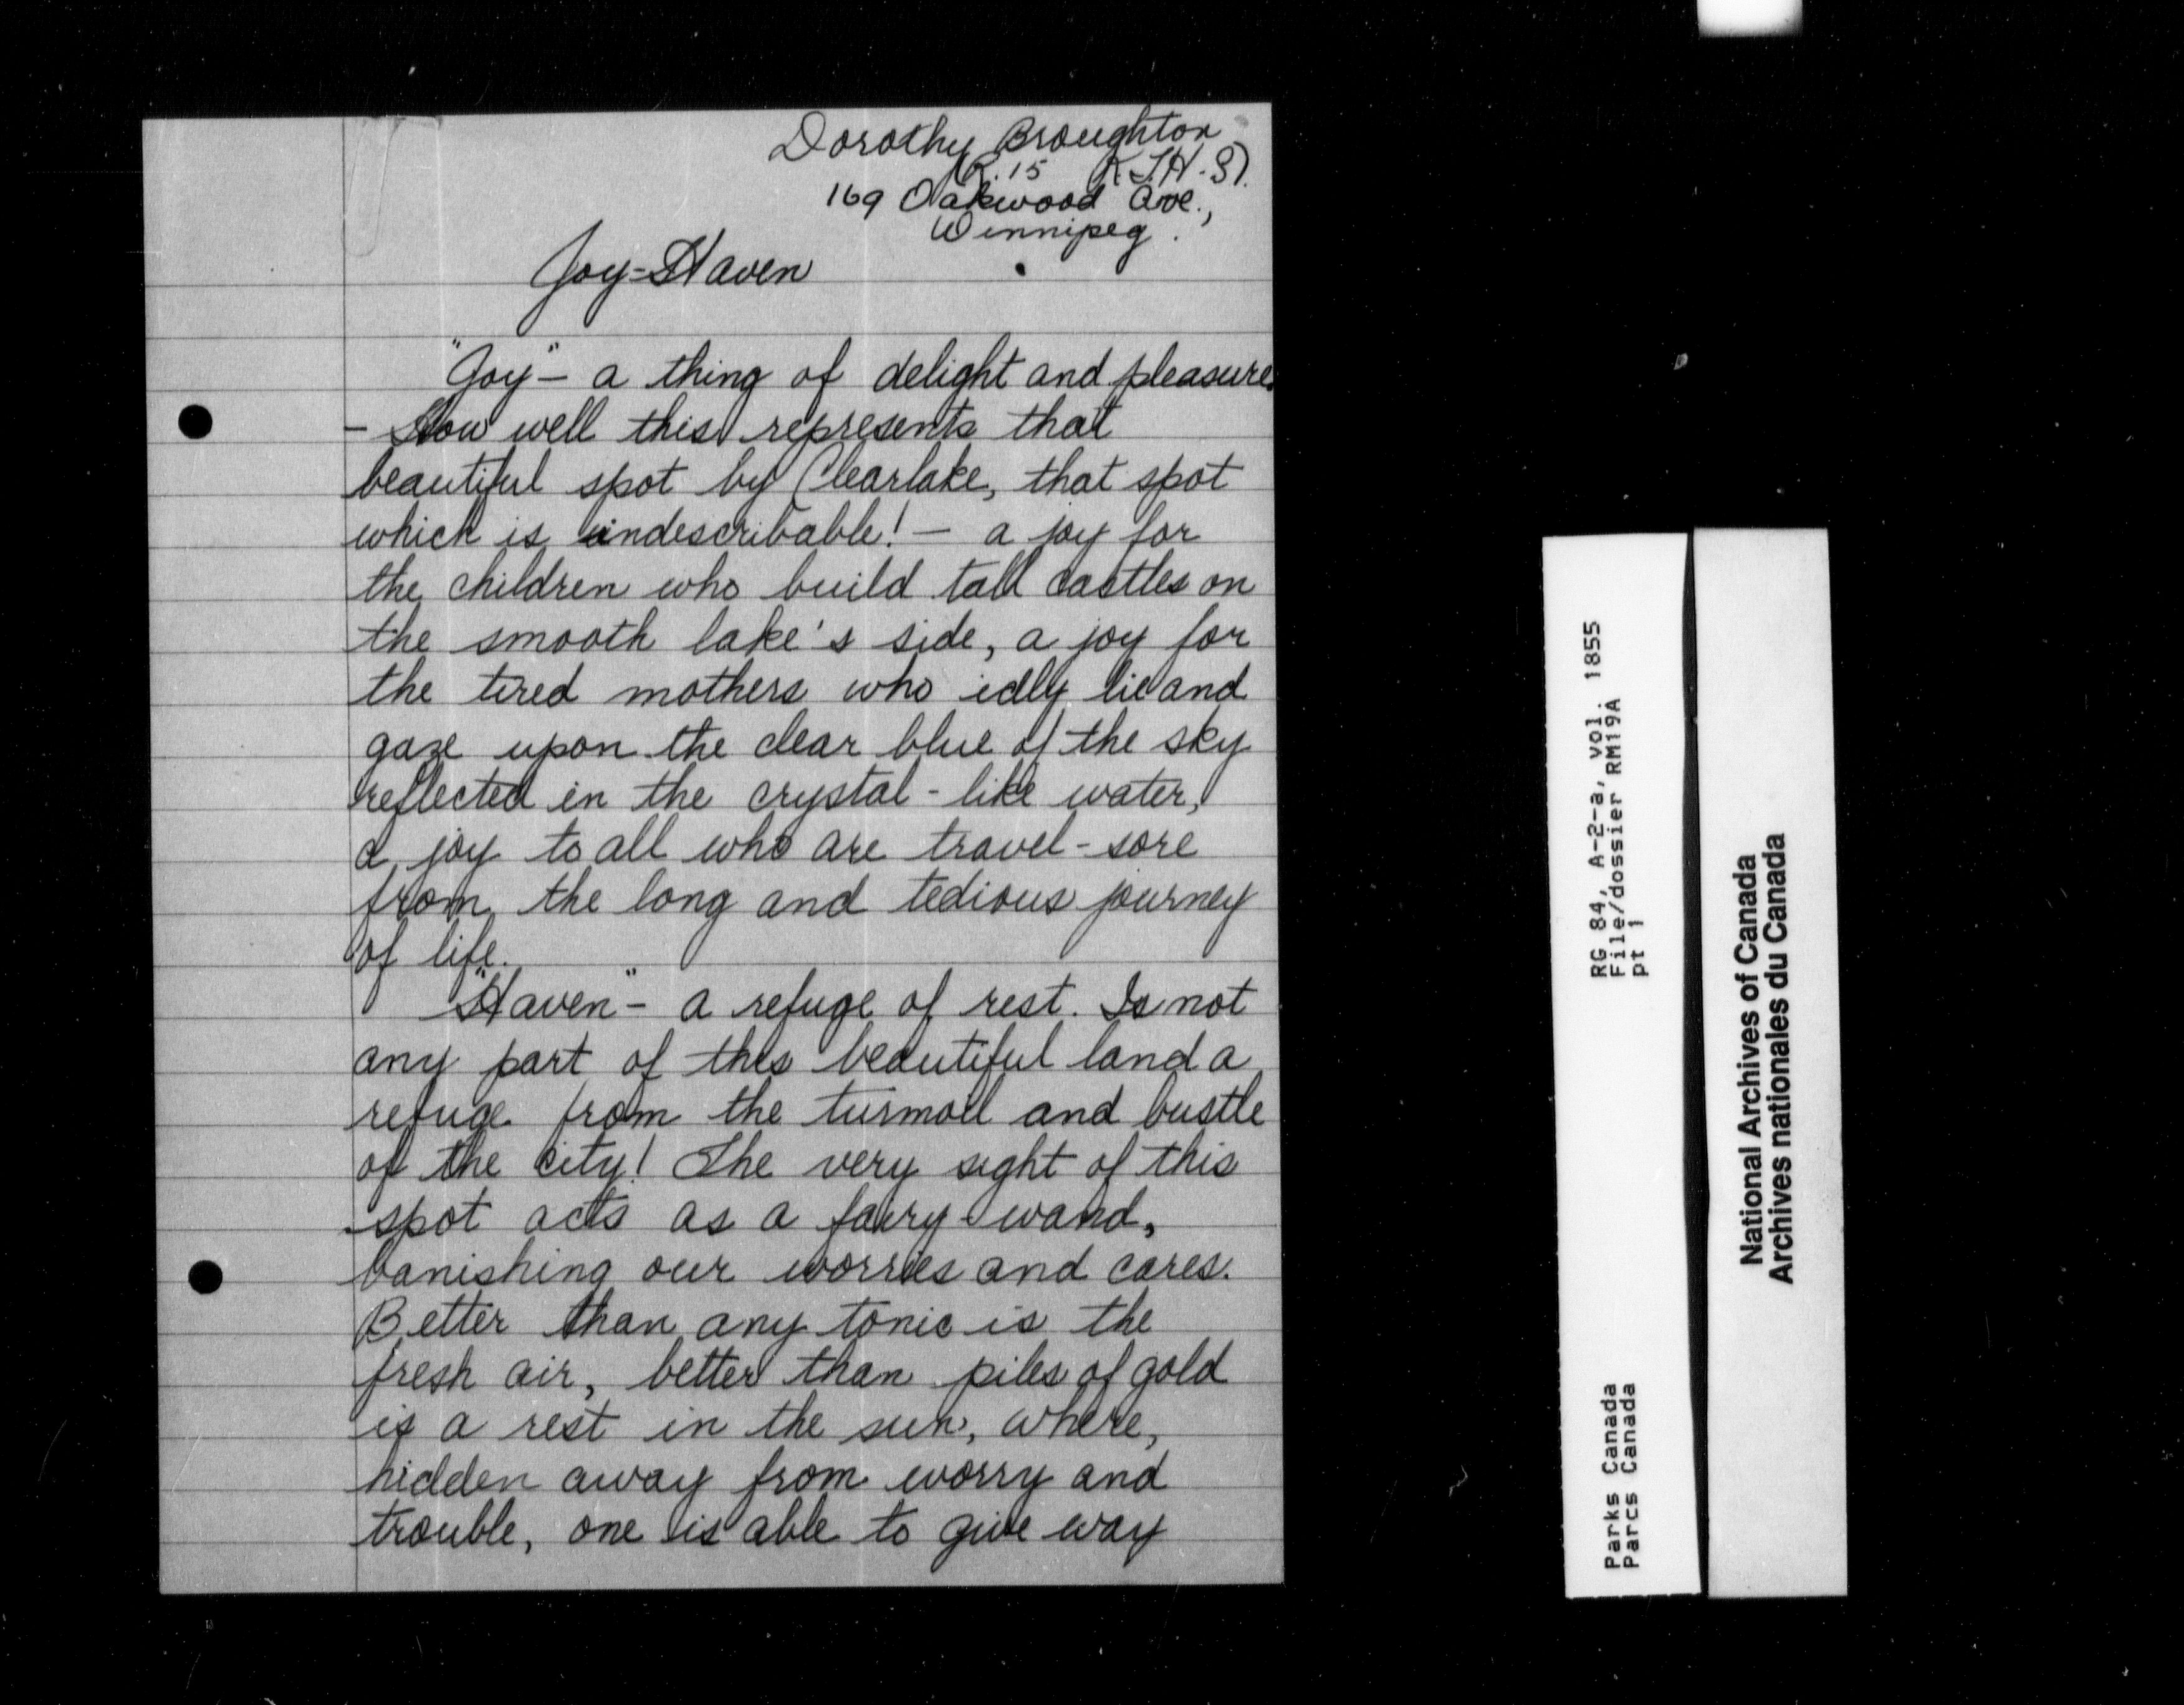 Dorothy Broughton
(R. 15 K.J.H.S).
169 Oakwood Ave.,
Winnipeg.
Joy-Haven
"Joy" - a thing of delight and pleasure.
- How well this represents that
beautiful spot by Clearlake, that spot
which is indescribable! - a joy for
the children who build tall castles on
the smooth lake's side, a joy for
the tired mothers who idly lie and
gaze upon the clear blue of the sky
reflected in the crystal-like water,
a joy to all who are travel-sore
from the long and tedious journey
of life.
"Haven" - a refuge of rest. Is not
any part of this beautiful land a
refuge from the turmoil and bustle
of the city! The very sight of this
spot acts as a fairy-wand,
banishing our worries and cares.
Better than any tonic is the
fresh air, better than piles of gold
is a rest in the sun, where,
hidden away from worry and
trouble, one is able to give way
RG 84, A-2-a, vol. 1855
File/dossier RM19A
pt 1
Parks Canada
Parcs Canada
National Archives of Canada
Archives nationales du Canada